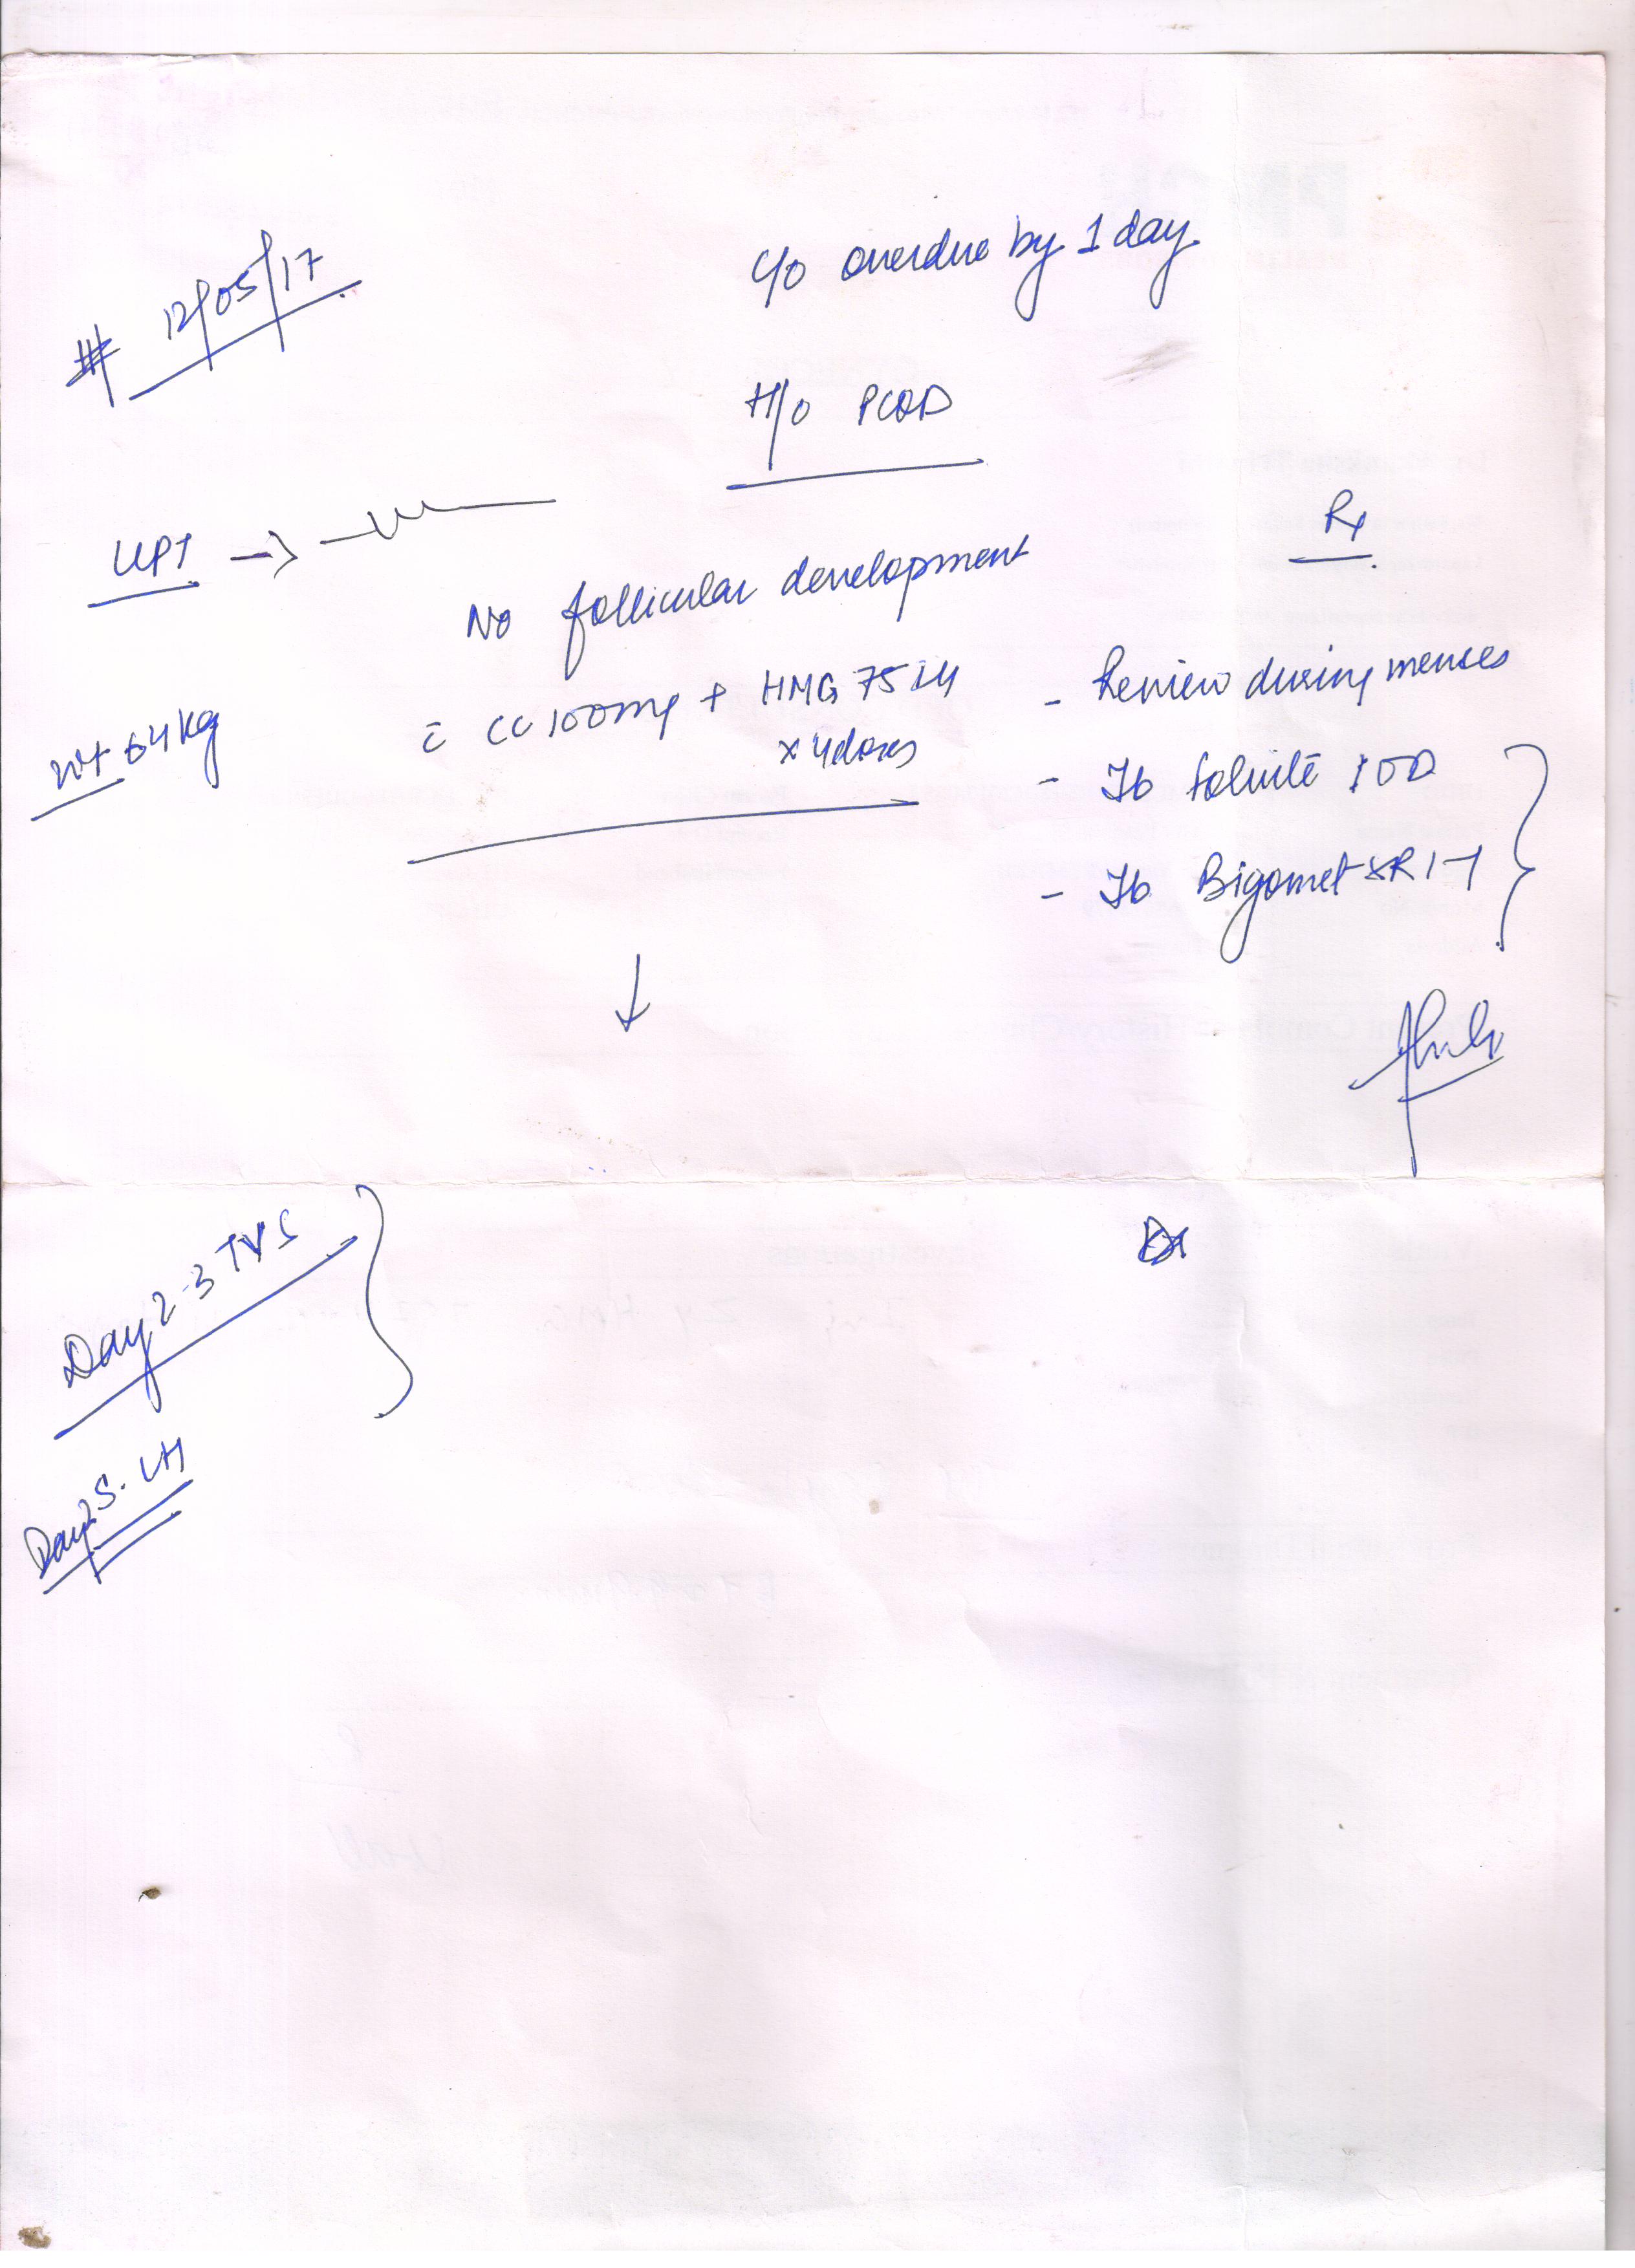 # 12/05/17
c/o overdue by 1 day.
H/o PCOD
UPT → -ve
No follicular development
c̄ CC 100mg + HMG 75 IU
x 4 doses
Wt 64 kg
Rx
- Review during menses
- Tb Folvite 1 OD
- Tb Bigomet XR 1-1
↓
Day 2-3 TVS
Day 2 S. LH